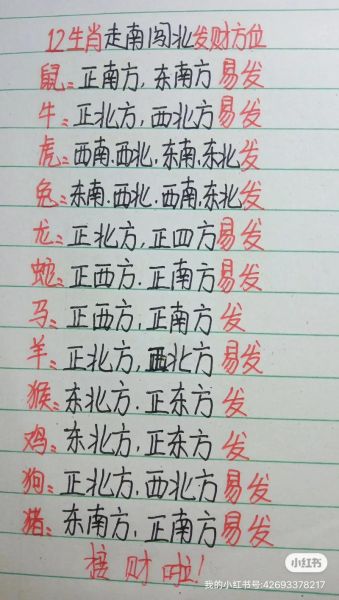 12生肖走南闯北发财方位
鼠:正南方,东南方易发
牛:正北方,西北方易发
虎:西南.西北,东南.东北发
兔:东南.西北,西南.东北发
龙:正北方,正四方易发
蛇:正西方.正南方易发
马:正西方,正南方 发
羊:正北方,西北方 易发
猴:东北方.正东方 发
鸡:东北方,正东方 发
狗:正北方,西北方易发
猪:东南方,正南方易发
接财啦!
小红书
我的小红书号:42693378217